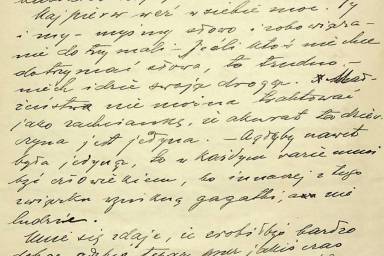 Najpierw weź w siebie moc. Ty
i my - myśmy słowo i zobowiąza-
nie dotrzymali - Jeśli ktoś nie chce
dotrzymać słowa, to trudno -
niech idzie swoją drogą. Mał-
żeństwa nie można traktować
jako zachciankę, że akurat ta dziew-
czyna jest jedyna. - A gdyby nawet
była jedyną, to w każdym razie musi
być człowiekiem, bo inaczej z tego
związku wynikną gagatki, a nie
ludzie.
Mnie się zdaje, że zrobiłbyś bardzo
dobrze, gdybyś teraz przez jakiś czas